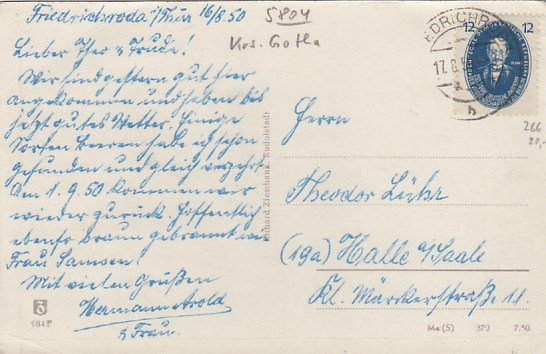 Friedrichroda i/Thür 16/8.50
5804
Krs. Gotha
Lieber Theo & Trude!
Wir sind gestern gut hier
angekommen und haben bis
jetzt gutes Wetter. Einige
Sorten Beeren habe ich schon
gefunden und gleich verzehrt.
Am 1.9.50 kommen wir
wieder zurück. Hoffentlich
ebenso braun gebrannt wie
Frau Samsen!
Mit vielen Grüßen
Hermann Arold
& Frau.
Richard Zieschank, Rudolstadt
EDRICHR
17.8.5
b
12 12
266
20,-
Herrn
Theodor Lühr
(19a) Halle a/Saale
Kl. Märkerstraße 11.
Ma (5) 370 7.50